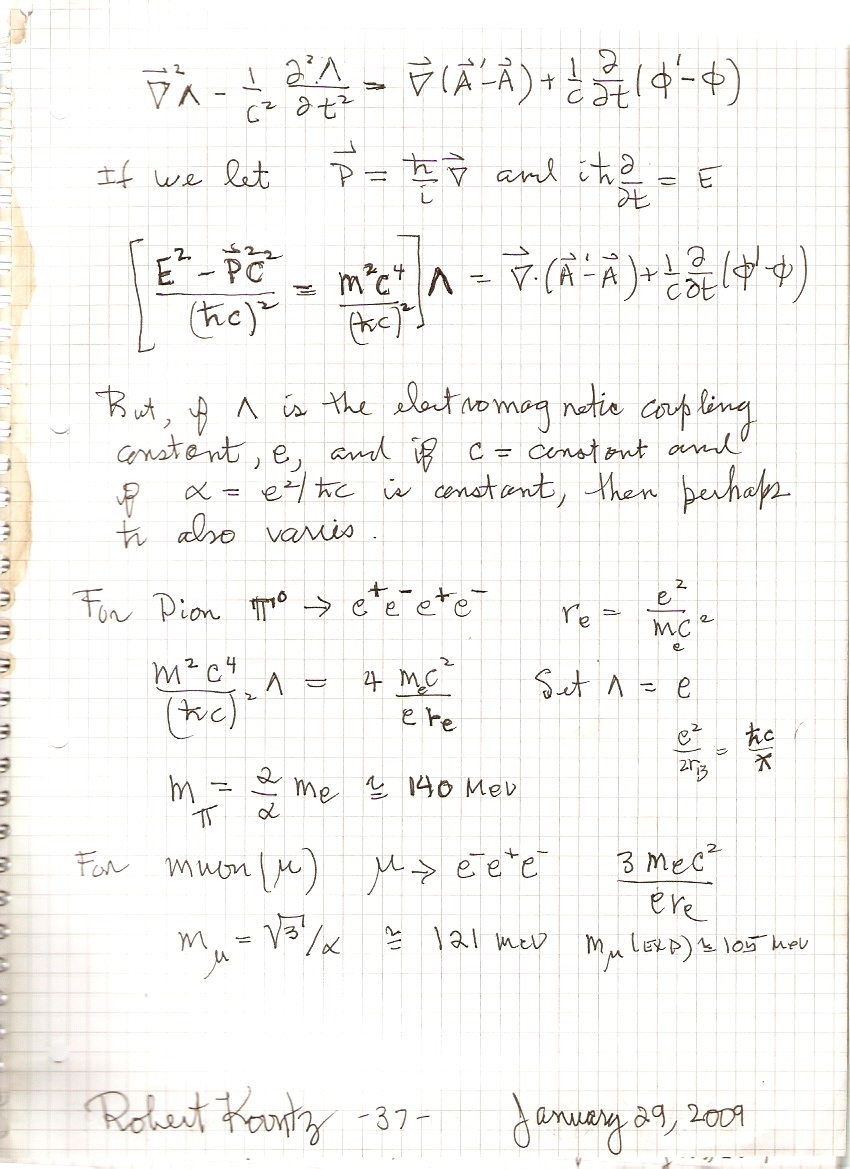 ∇⃗²Λ - 1/c² ∂²Λ/∂t² = ∇⃗(A⃗'-A⃗) + 1/c ∂/∂t(ϕ'-ϕ)
If we let P⃗ = ħ/i ∇⃗ and iħ∂/∂t = E
[E² - P⃗²C²/(ħc)² = m²c⁴/(ħc)²]Λ = ∇⃗·(A⃗'-A⃗) + 1/c ∂/∂t(ϕ'-ϕ)
But, if Λ is the electromagnetic coupling
constant, e, and if c = constant and
if α = e²/ħc is constant, then perhaps
ħ also varies.
For Pion π⁰ → e⁺e⁻e⁺e⁻ rₑ = e²/mₑc²
m²c⁴/(ħc)² Λ = 4 mₑc²/e rₑ Set Λ = e
e²/2r_B = ħc/ƛ
m_π = 2/α mₑ ≅ 140 MeV
For muon(μ) μ → e⁻e⁺e⁻ 3 mec²/erₑ
m_μ = √3/α ≅ 121 meV m_μ(EXP) ≅ 105 MeV
Robert Koontz -37- January 29, 2009